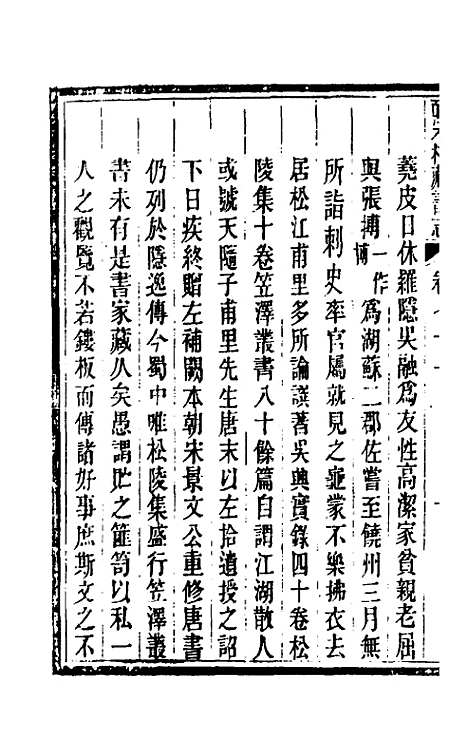 蕘皮日休羅隱吳融爲友性高潔家貧親老屈
與張摶一作博爲湖蘇二郡佐嘗至饒州三月無
所詣刺史率官屬就見之龜蒙不樂拂衣去
居松江甫里多所論譔著吳興實錄四十卷松
陵集十卷笠澤叢書八十餘篇自謂江湖散人
或號天隨子甫里先生唐末以左拾遺授之詔
下日疾終贈左補闕本朝宋景文公重修唐書
仍列於隱逸傳今蜀中唯松陵集盛行笠澤叢
書未有是書家藏久矣愚謂貯之篋笥以私一
人之觀覽不若鏤板而傳諸好事庶斯文之不